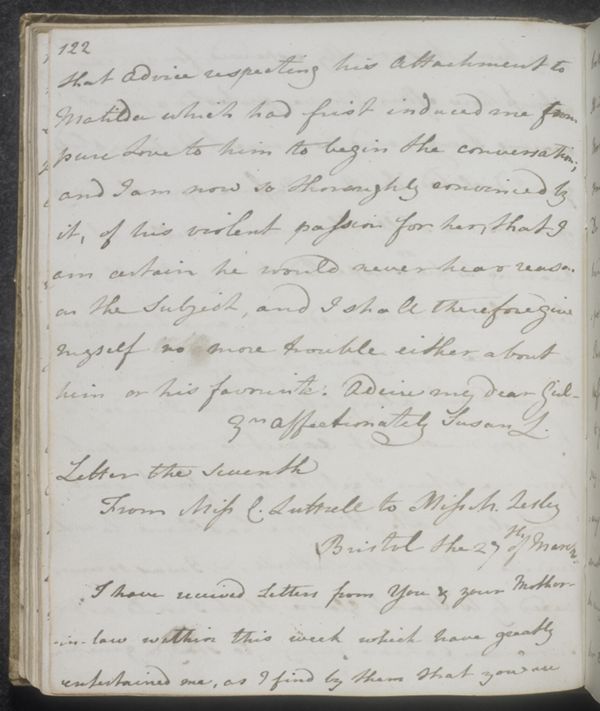 122
that advice respecting his Attachment to
Matilda which had first induced me from
pure Love to him to begin the conversation;
and I am now so thoroughly convinced by
it, of his violent passion for her, that I
am certain he would never hear reason
on the Subject, and I shall therefore give
myself no more trouble either about
him or his favourite. Adeiu my dear Girl-
Yrs affectionately Susan L.
Letter the seventh
From Miss C. Luttrell to Miss M. Lesley
Bristol the 27th of March
I have received Letters from You & your Mother-
-in-law within this week which have greatly
entertained me, as I find by them that you are